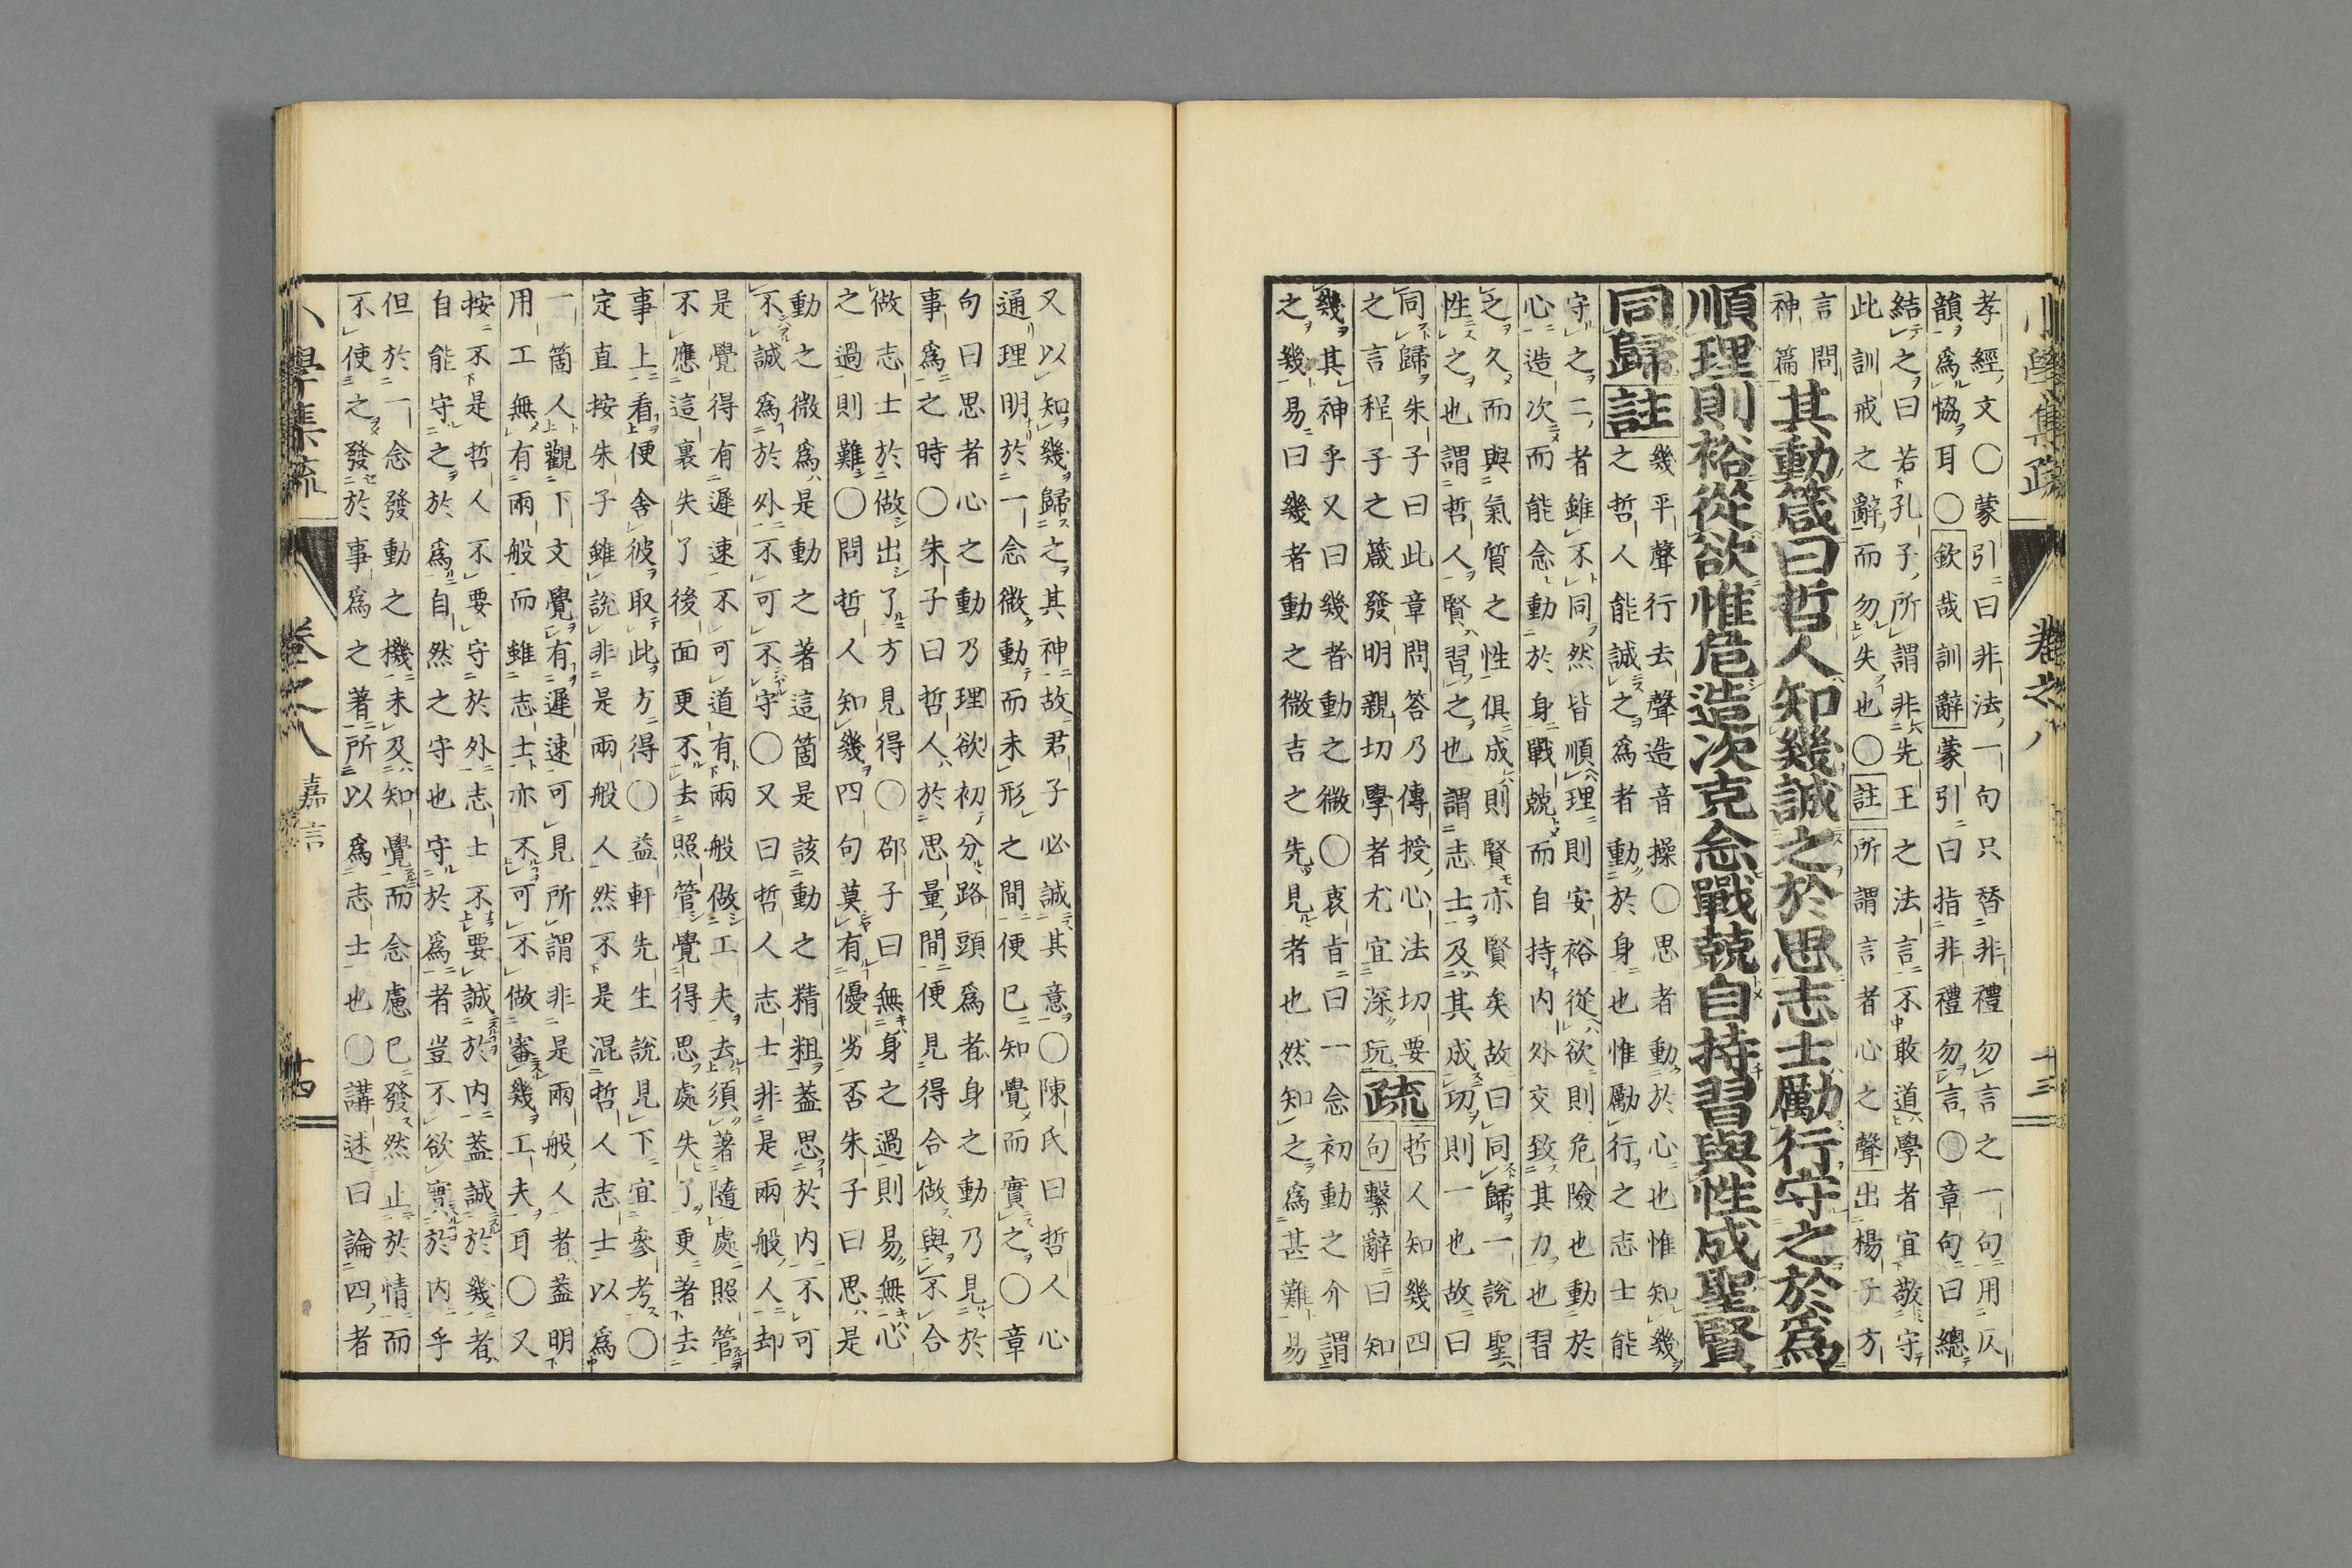 小學集疏
卷之八
十三
孝經文○蒙引曰非法一句只替非禮勿言之一句用仄
韻爲協耳○欽哉訓辭蒙引曰指非禮勿言○章句曰總
結之曰若孔子所謂非先王之法言不敢道學者宜敬守
此訓戒之辭而勿失也○註所謂言者心之聲出楊子方
言問
神篇
其動箴曰哲人知幾誠之於思志士勵行守之於爲
順理則裕從欲惟危造次克念戰兢自持習與性成聖賢
同歸註
幾平聲行去聲造音操○思者動於心也惟知幾
之哲人能誠之爲者動於身也惟勵行之志士能
守之二者雖不同然皆順理則安裕從欲則危險也動於
心造次而能念動於身戰兢而自持內外交致其力也習
之久而與氣質之性俱成則賢亦賢矣故曰同歸一說聖
性之也謂哲人賢習之也謂志士及其成功則一也故曰
同歸朱子曰此章問答乃傳授心法切要
之言程子之箴發明親切學者尤宜深玩
疏
哲人知幾四
句繫辭曰知
幾其神乎又曰幾者動之微○衷旨曰一念初動之介謂
之幾易曰幾者動之微吉之先見者也然知之爲甚難易
又以知幾歸之其神故君子必誠其意○陳氏曰哲人心
通理明於一念微動而未形之間便已知覺而實之○章
句曰思者心之動乃理欲初分路頭爲者身之動乃見於
事爲之時○朱子曰哲人於思量間便見得合做與不合
做志士於做出了方見得○邵子曰無身之過則易無心
之過則難○問哲人知幾四句莫有優劣否朱子曰思是
動之微爲是動之著這箇是該動之精粗蓋思於內不可
不誠爲於外不可不守○又曰哲人志士非是兩般人却
是覺得有遲速不可道有兩般做工夫去須著隨處照管
不應這裏失了後面更不去照管覺得思處失了更著去
事上看便舍彼取此方得○益軒先生說見下宜參考○
定直按朱子雖說非是兩般人然不是混哲人志士以爲
一箇人觀下文覺有遲速可見所謂非是兩般人者蓋明
用工無有兩般而雖志士亦不可不做審幾工夫耳○又
按不是哲人不要守於外志士不要誠於內蓋誠於幾者
自能守之於爲自然之守也守於爲者豈不欲實於內乎
但於一念發動之機未及知覺而念慮已發然止於情而
不使之發於事爲之著所以爲志士也○講述曰論四者
學集疏
卷之八
嘉言
十四